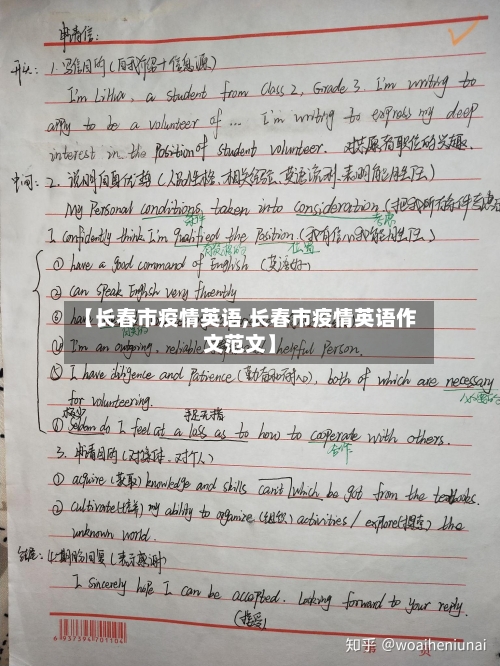 申请信:
开头: 1. 写信目的(自我介绍+信息源)
I'm LiHua, a student from Class 2, Grade 3. I'm writing to
apply to be a volunteer of ... I'm writing to express my deep
interest in the position of student volunteer. 对其愿有职位的兴趣
中间: 2. 说明自身优势(人品性格、相关经验、英语流利、表明能胜任)
My Personal conditions taken into consideration (把我所有条件考虑
条件 考虑
I confidently think I'm qualified the Position (我有信心我能胜任)
有资格的 位置
① have a good command of English (英语好)
② can speak English very fluently
③ ha
【长春市疫情英语,长春市疫情英语作
文范文】
④ I'm an outgoing, reliable helpful Person.
⑤ I have diligence and Patience (勤奋和耐心), both of which are necessary
for volunteering. 必要的
极少 手足无措
⑥ Seldom do I feel at a loss as to how to cooperate with others.
合作
3. 申请目的(对集体、对个人)
① acquire (获取) knowledge and skills can't which be got from the textbooks.
② cultivate(培养) my ability to organize (组织) activities / explore(探索) the
unknown world.
结尾: 4. 期盼回复(表示感谢)
I sincerely hope I can be accepted. Looking forward to your reply.
(接受)
6 937394 701104
第 页
知乎 @woaiheniunai